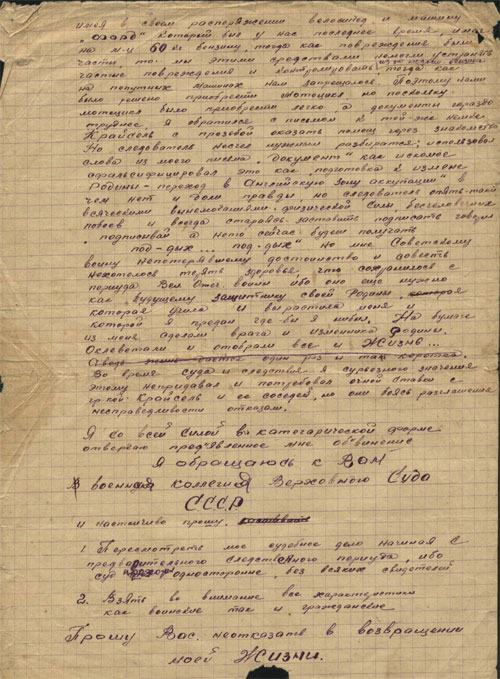 имея в своем распоряжении велосипед и машину
"опель" который был у нас последнее время, имел
на м-ц 60 кг бензину, тогда как повреждения были
части то мы этими средствами немогли устранять
частые повреждения и контролировать тогда как
на попутных машинах нам запрещалось. Поэтому нами
было решено приобрести мотоцикл но поскольку
мотоцикл было приобрести легко, а документы гораздо
труднее. Я обратился с письмом к той-же немке
Крайсель с прозбой оказать помощ через знакомства
Но следователь несчел нужным разбиратся; использовал
слова из моего письма "документ" как искомое
афальсифицировал это как подготовка к измене
Родины - переход в Английскую зону оккупации" в
чем нет и доли правды но следователь опять-таки
всяческими вынемогатиями физической силы бесчеловечных
побоев и всегда стараясь заставить подписать говоря
подписывай а нето сейчас будеш получать
под-дых... под-дых" но мне Советскому
воину непотерявшему достоинство и совесть
нехотелось терять здоровье, что сохранилось с
периуда Вел. Отеч. воины ибо оно еще нужно
как будущему защитнику своей Родины. которая
которая учила и вырастила меня и
которой я предан где-бы я небыл. На бумаге
из меня сделали врага и изменника Родины.
Оклеветали и отобрали все и Жизнь...
один раз и так коротка.
Во время суда и следствия я сурьезного значения
этому непридавал и потребовал очной ставки с
гр-кой Крайсель и ее соседей, но они боясь разглашения
несправедливости отказали.
Я со всей силой в категорической форме
отвергаю пред'явленное мне обвинение
Я обращаюсь к Вам
В военная Коллегия Верховного Суда
СССР
и настойчиво прошу.
1. Пересмотреть мое судебное дело начиная с
предварительного следственного периуда, ибо
суд односторонне, без всяких свидетелей
2. Взять во внимание все характеристики
как воинские так и гражданские
Прошу Вас неотказать в возвращении
моей Жизни.